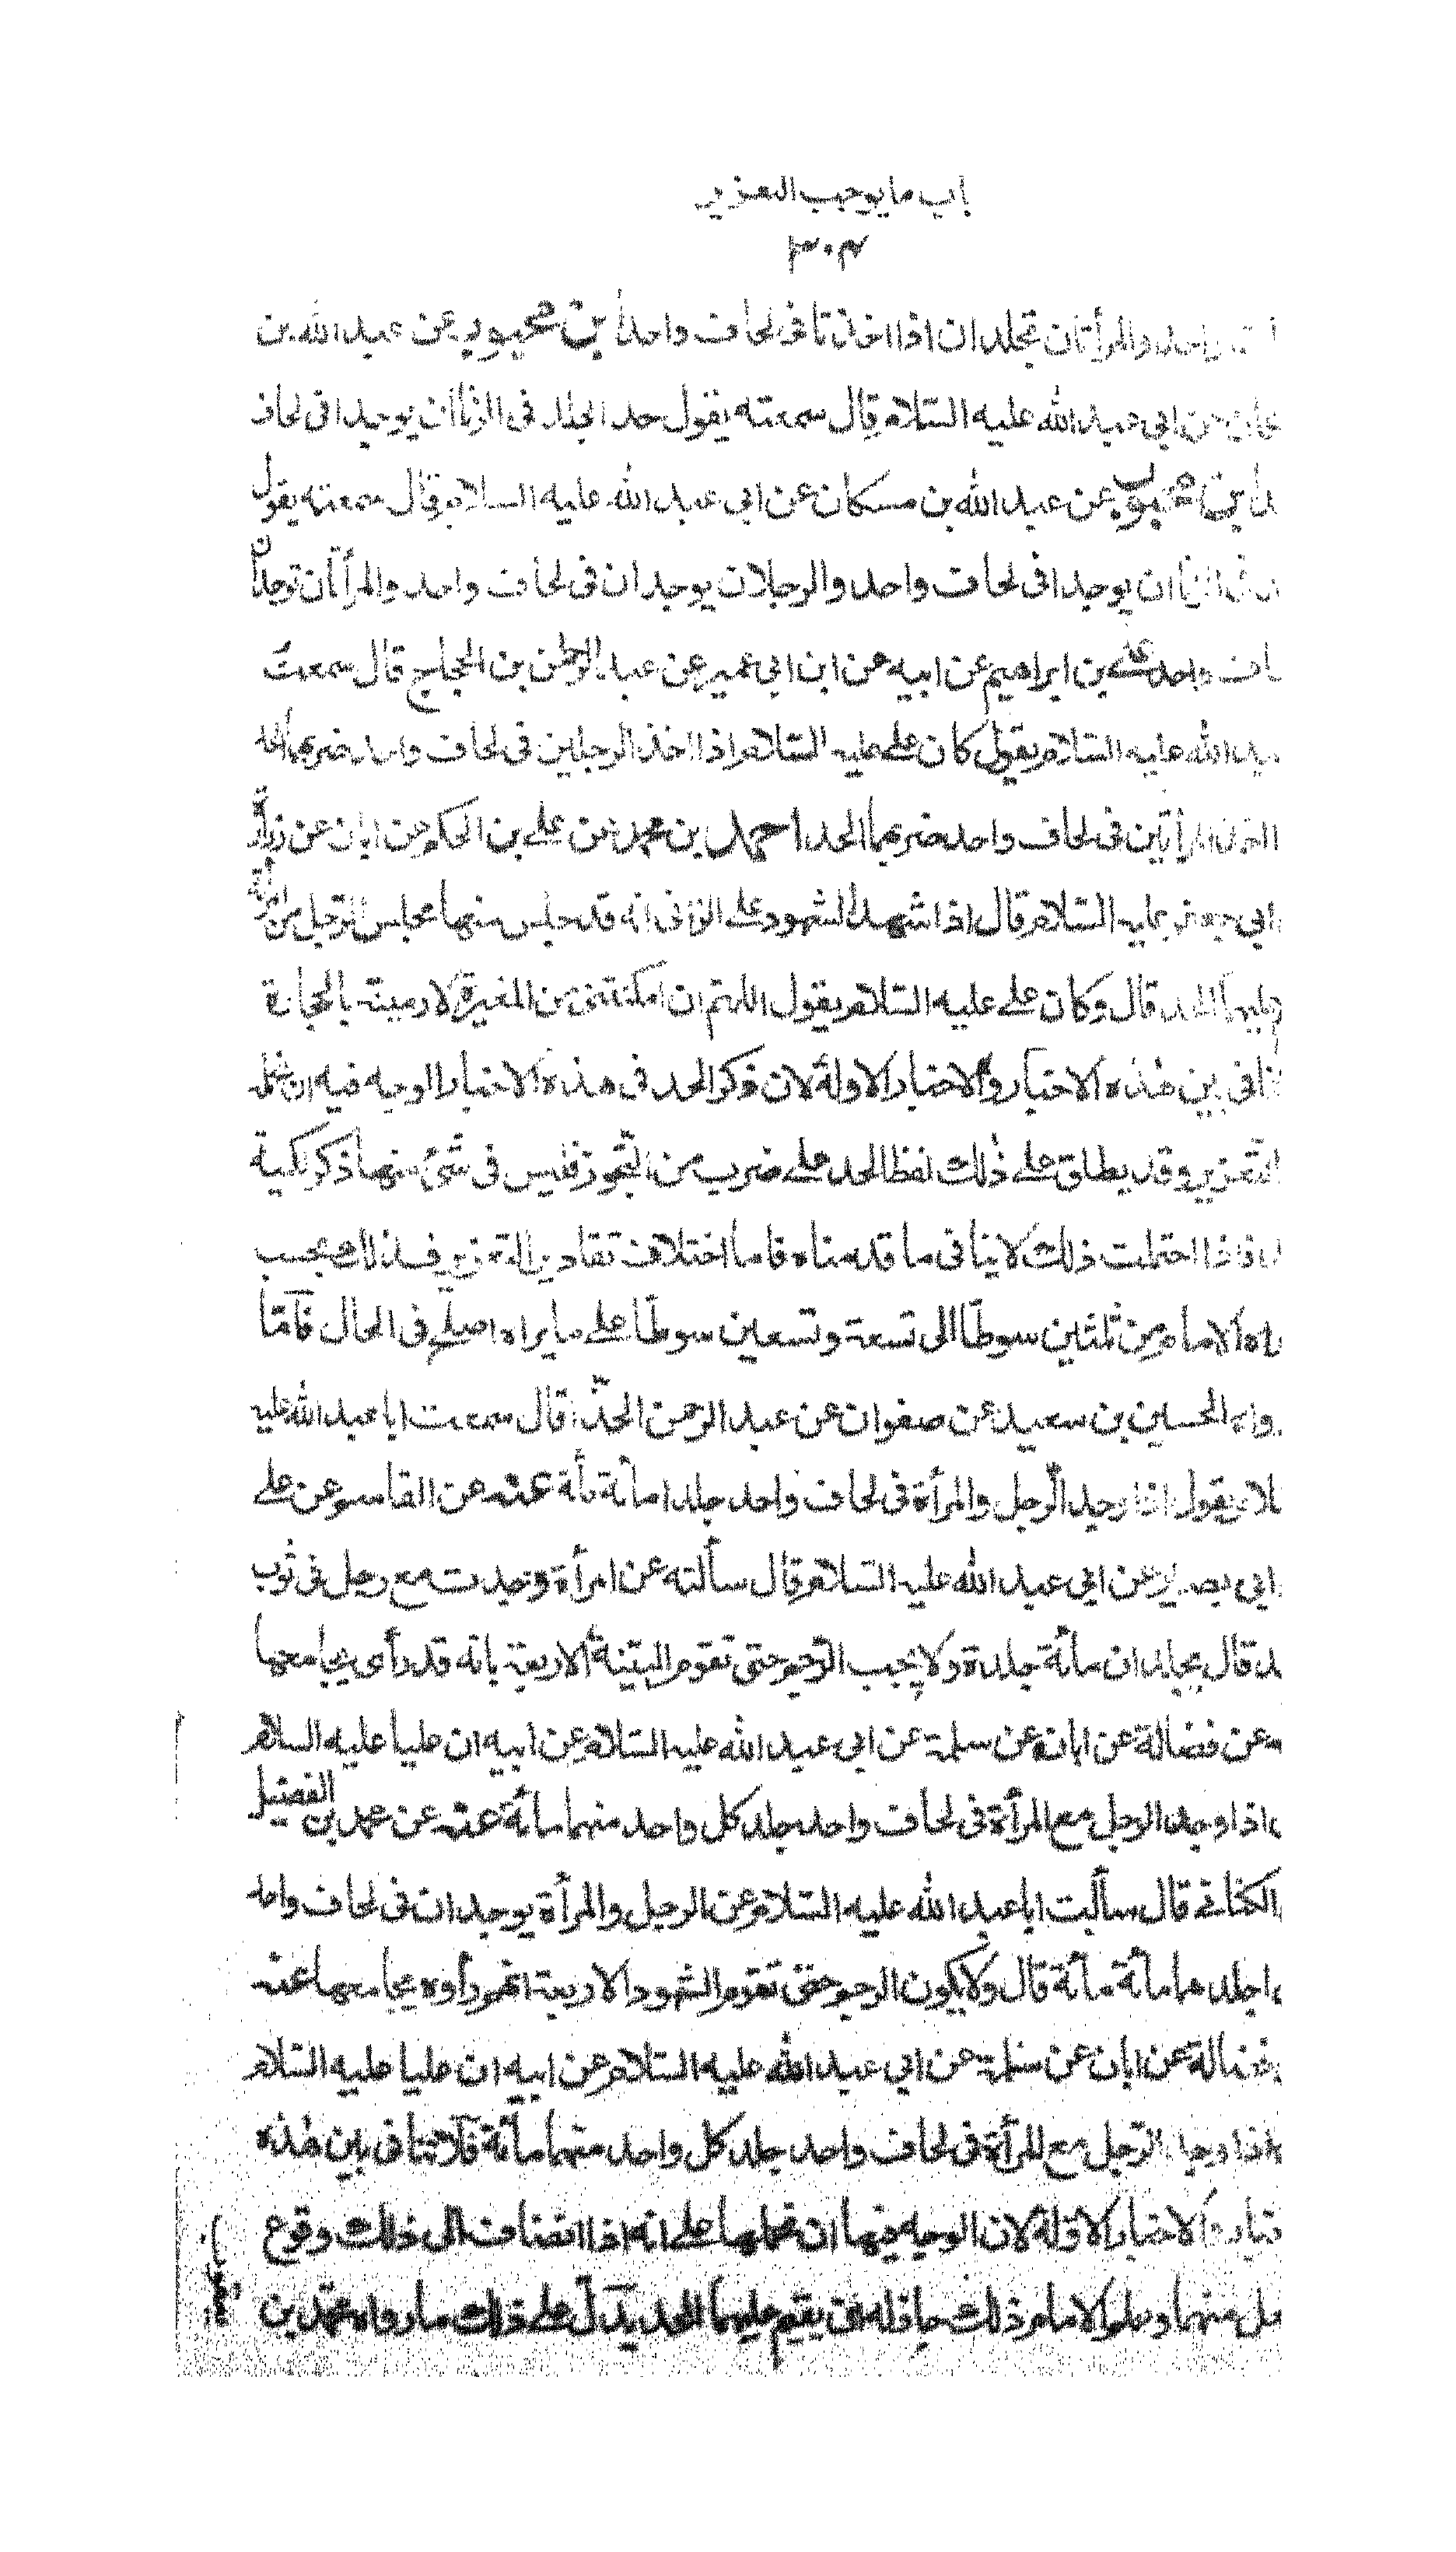 باب ما يوجب التعزير
٣٠٣
واحد والمرأتان تجلدان اذا اخذتا فى لحاف واحد ابن محبوب عن عبد الله بن
عن ابى عبد الله عليه السّلام قال سمعته يقول حد الجلد فى الزنا ان يوجدا فى لحاف
ابن محبوب عن عبد الله بن مسكان عن ابى عبد الله عليه السلام قال سمعته يقول
فى الزنا ان يوجدا فى لحاف واحد والرجلان يوجدان فى لحاف واحد والمرأتان توجدان
واحد على بن ابراهيم عن ابيه عن ابن ابى عمير عن عبد الرحمن بن الحجاج قال سمعت
عبد الله عليه السّلام يقول كان على عليه السّلام اذا اخذ الرجلين فى لحاف واحد ضربهما الحد
اخذ المرأتين فى لحاف واحد ضربهما الحد احمد بن محمد عن على بن الحكم عن ابان عن زرارة
ابى جعفر عليه السّلام قال اذا شهد الشهود على الزانى انه قد جلس منها مجلس الرّجل من امرأته
عليهما الحد قال وكان على عليه السّلام يقول اللهمّ ان امكنتنى من المغيرة لارمينّه بالحجارة
بين هذه الاخبار والاخبار الاولة لان ذكر الحد فى هذه الاخبار الوجه فيه ان نحمله
التعزير وقد يطلق على ذلك لفظ الحد على ضرب من التّجوز فليس فى شئ منها ذكر لكمية
فاذا احتملت ذلك لا ينافى ما قدمناه فاما اختلاف تقادير التعزير فذلك بحسب
يراه الامام من ثلثين سوطا الى تسعة وتسعين سوطا على ما يراه اصلح فى الحال فامّا
رواه الحسين بن سعيد عن صفوان عن عبد الرحمن الحذّا قال سمعت ابا عبد الله عليه
يقول اذا وجد الرّجل والمرأة فى لحاف واحد جلدا مأئة مأة عنه عن القاسم عن على
ابى بصير عن ابى عبد الله عليه السّلام قال سألته عن امرأة وجدت مع رجل فى ثوب
قال يجلدان مأئة جلدة ولا يجب الرّجم حتى تقوم البيّنة الاربعة بانه قد رأى يجامعها
عن فضالة عن ابان عن سلمة عن ابى عبد الله عليه السّلام عن ابيه ان عليا عليه السلام
اذا وجد الرجل مع المرأة فى لحاف واحد جلد كل واحد منهما مائة عنه عن محمد بن الفضيل
الكنانى قال سألت ابا عبد الله عليه السّلام عن الرجل والمرأة يوجدان فى لحاف واحد
اجلدهما مأئة مأئة قال ولا يكون الرجم حتى تقوم الشّهود الاربعة انهم رأوه يجامعها عنه
فضالة عن ابان عن سلمة عن ابى عبد الله عليه السّلام عن ابيه ان عليا عليه السّلام
اذا وجد الرّجل مع المرأة فى لحاف واحد جلد كل واحد منهما مأئة فلا تنافى بين هذه
الاخبار الاولة لان الوجه فيها ان نحملها على انه اذا انضاف الى ذلك وقوع
منهما وعلم الامام ذلك جاز له ان يقيم عليهما الحد يدلّ على ذلك ما رواه محمّد بن